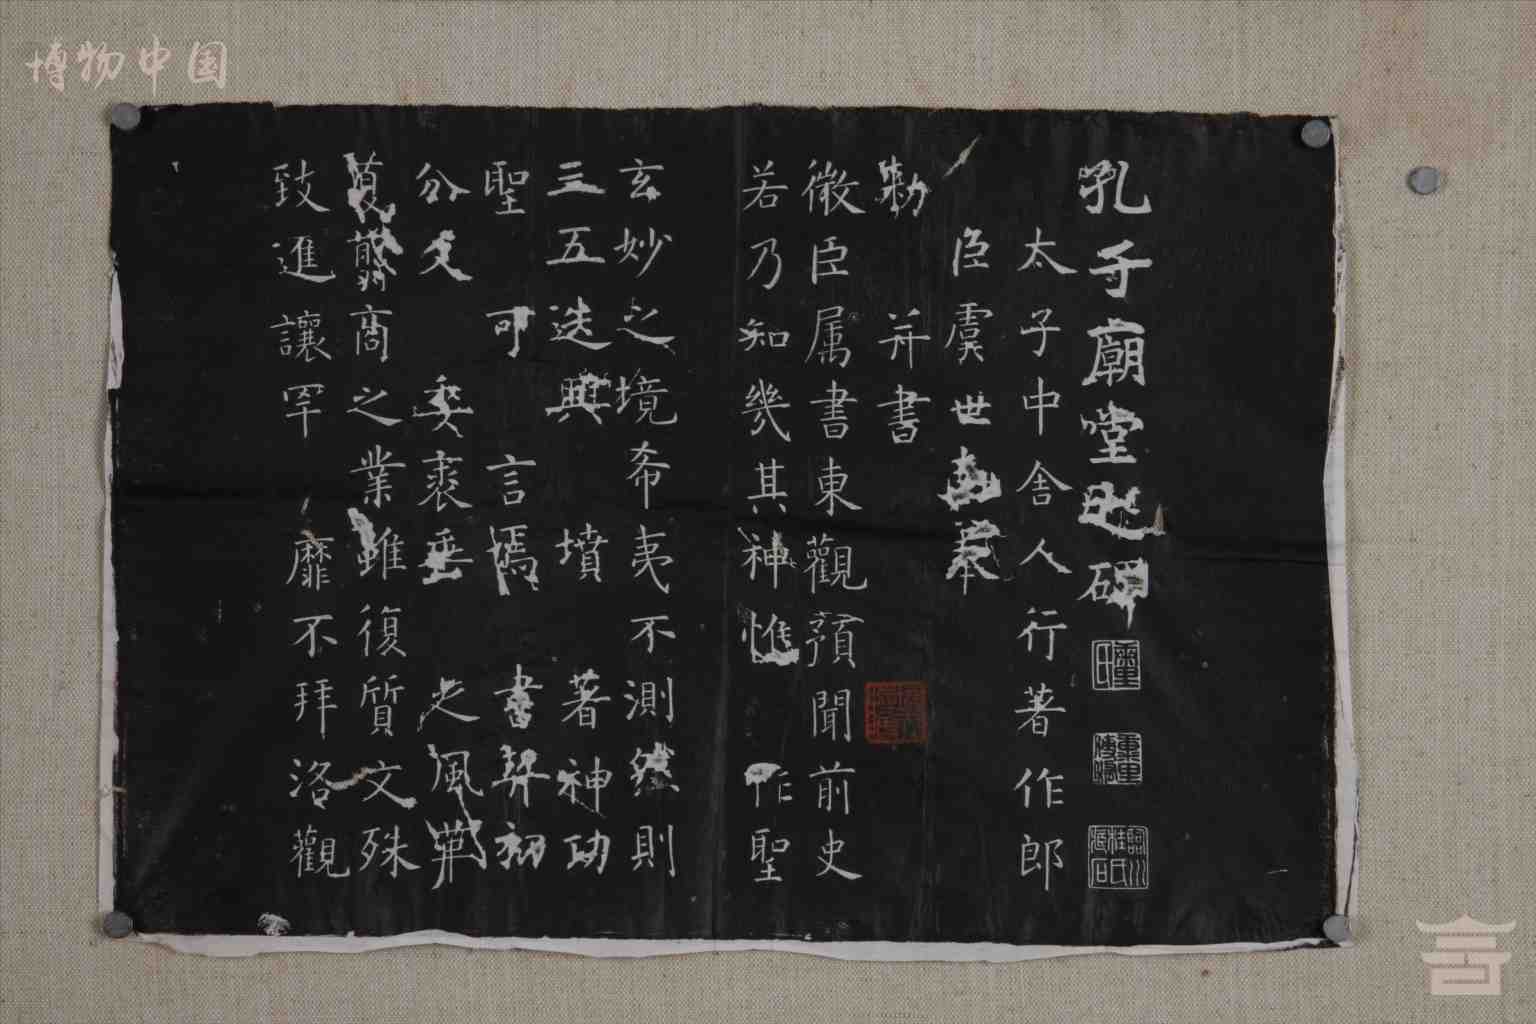 博物中国
孔子廟堂之碑
太子中舍人行著作郎
臣虞世南奉
勑 并書
微臣属書東觀預聞前史
若乃知幾其神惟 作聖
玄妙之境希夷不測然則
三五迭興 墳 著神功
聖 可 言焉 書契初
分爻 之風華
夏翦商之業雖復質文殊
致進讓罕 靡不拜洛觀